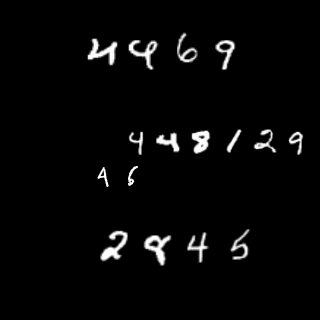 4469
448129
46
2845